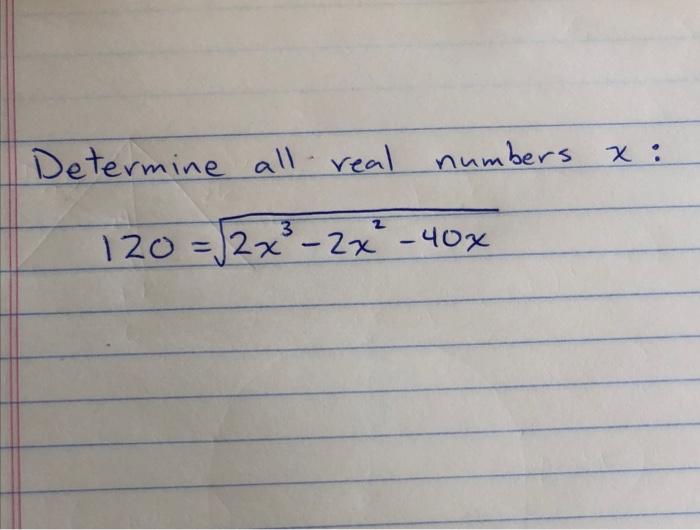 Determine all real numbers x:
120 = √(2x³ - 2x² - 40x)